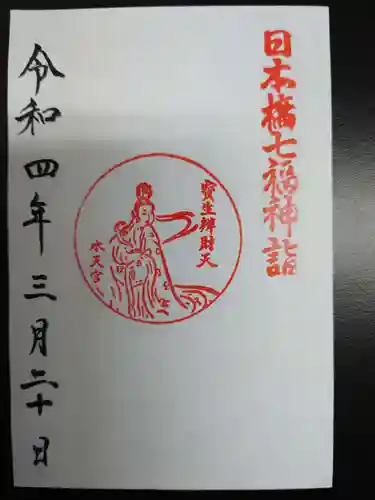 日本橋七福神詣
寳生辨財天
水天宮
令和四年三月二十日